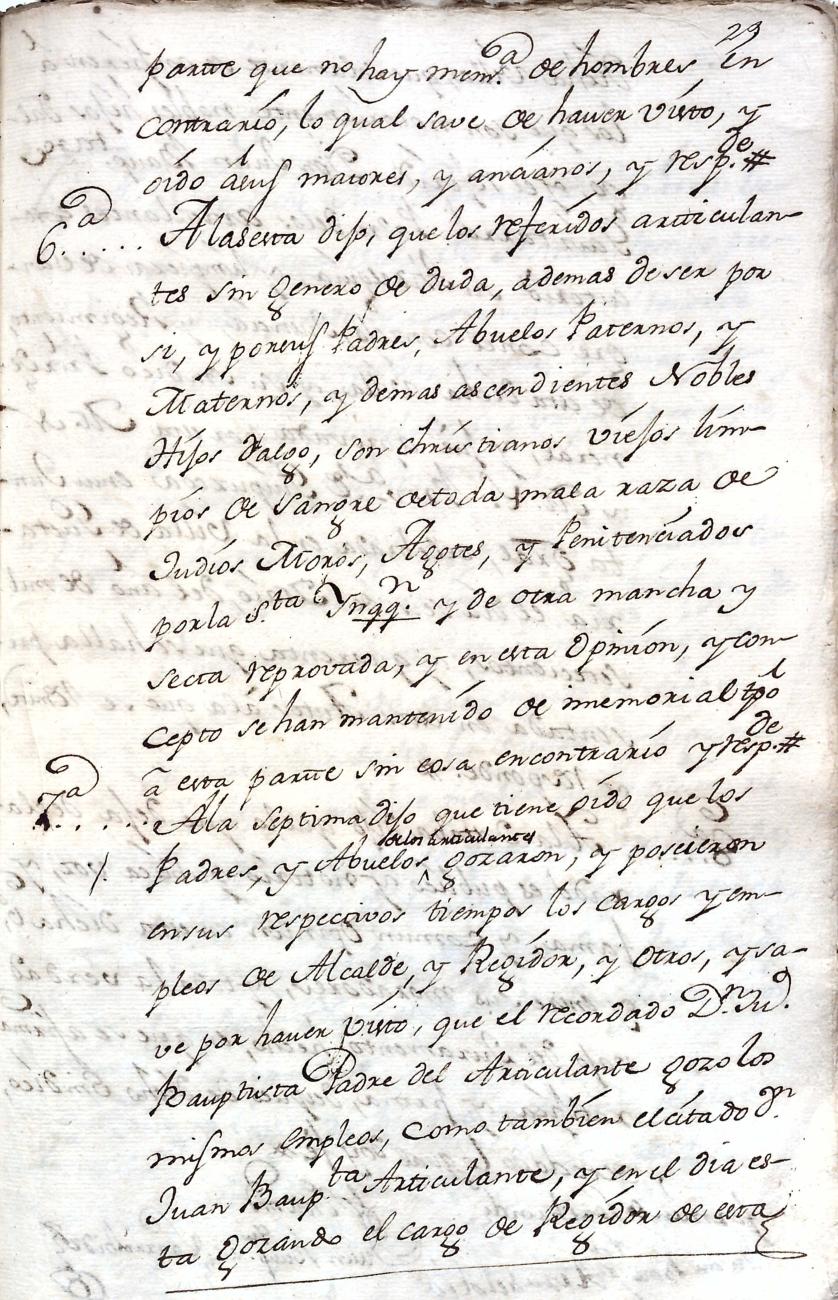 29
partte que no hay mem.ª de hombres en
contrario, lo qual save de haver visto, y
oido a sus maiores, y ancianos, y resp.de #
6.ª..... A la sexta dijo, que los referidos articulan-
tes sin genero de duda, ademas de ser por
si, y por sus Padres, Abuelos Paternos, y
Maternos, y demas ascendientes Nobles
Hijos dalgo, son christianos viejos lim-
pios de sangre de toda mala raza de
Judios Moros, Agotes, y Penitenciados
por la S.ta Ynqq.n y de otra mancha y
secta reprovada, y en esta Opinion, y con-
cepto se han mantenido de inmemorial tpo
a esta partte sin cosa en contrario y resp.de #
7.ª..... A la septima dijo que tiene oido que los
/. Padres, y Abuelos ^de los articulantes gozaron, y poseieron
en sus respectivos tiempos los cargos y em-
pleos de Alcalde, y Regidor, y otros, y sa-
ve por haver visto, que el recordado D.n Ju.º
Bauptista Padre del Articulante gozo los
mismos empleos, como tambien el citado d.n
Juan Baup.ta Articulante, y en el dia es-
ta gozando el cargo de Regidor de esta